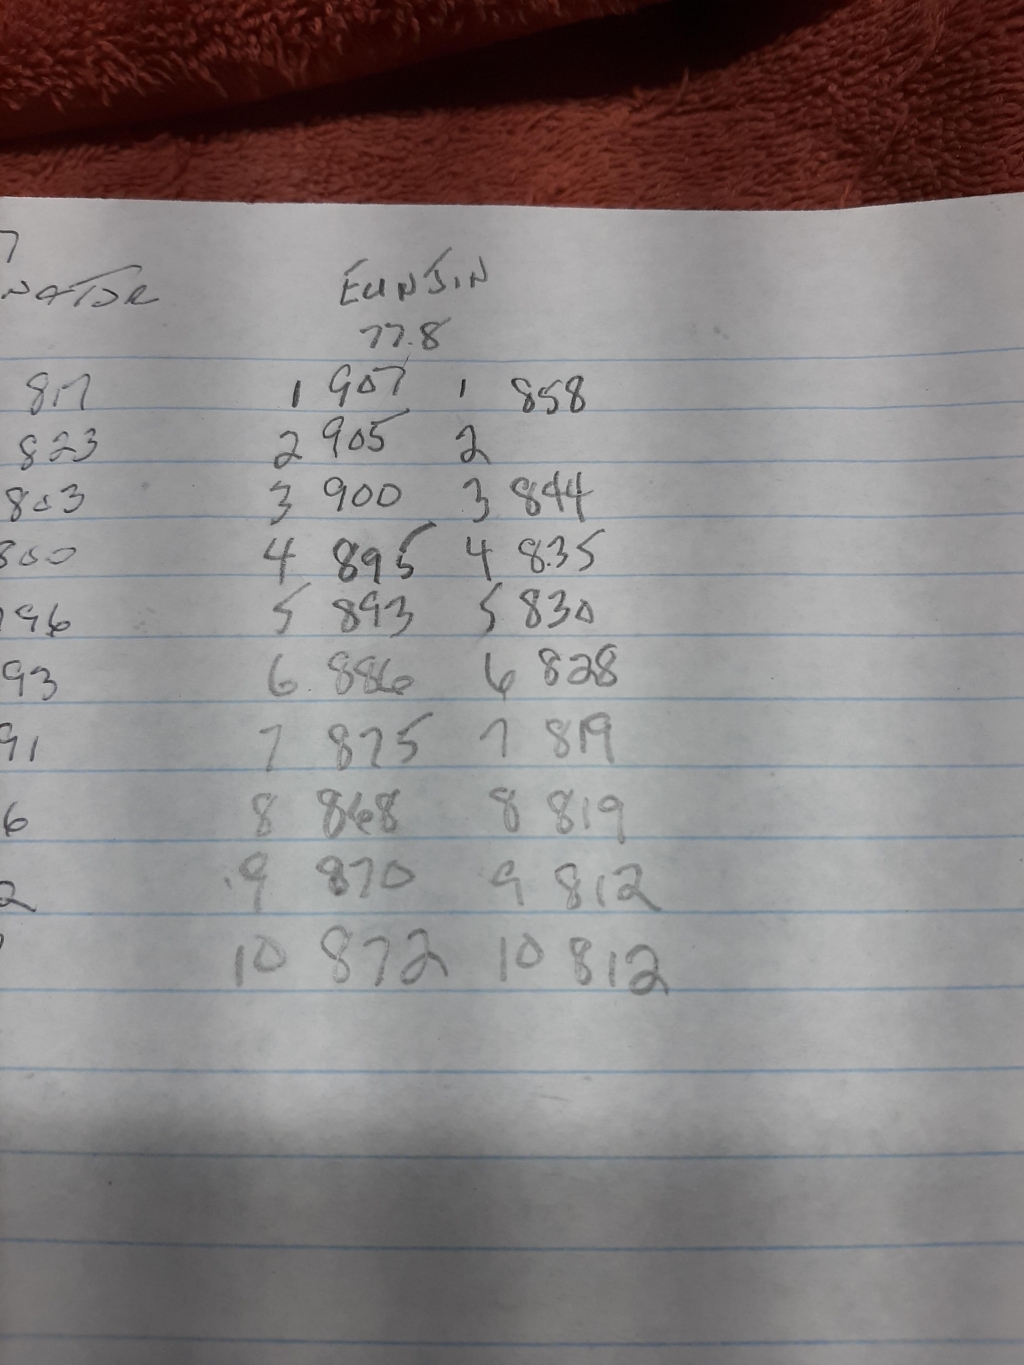 7
NATOR EUNJIN
77.8
817 1 907 1 858
823 2 905 2
803 3 900 3 844
800 4 895 4 835
796 5 893 5 830
93 6 886 6 828
91 7 875 7 819
6 8 868 8 819
2 9 870 9 812
10 872 10 812